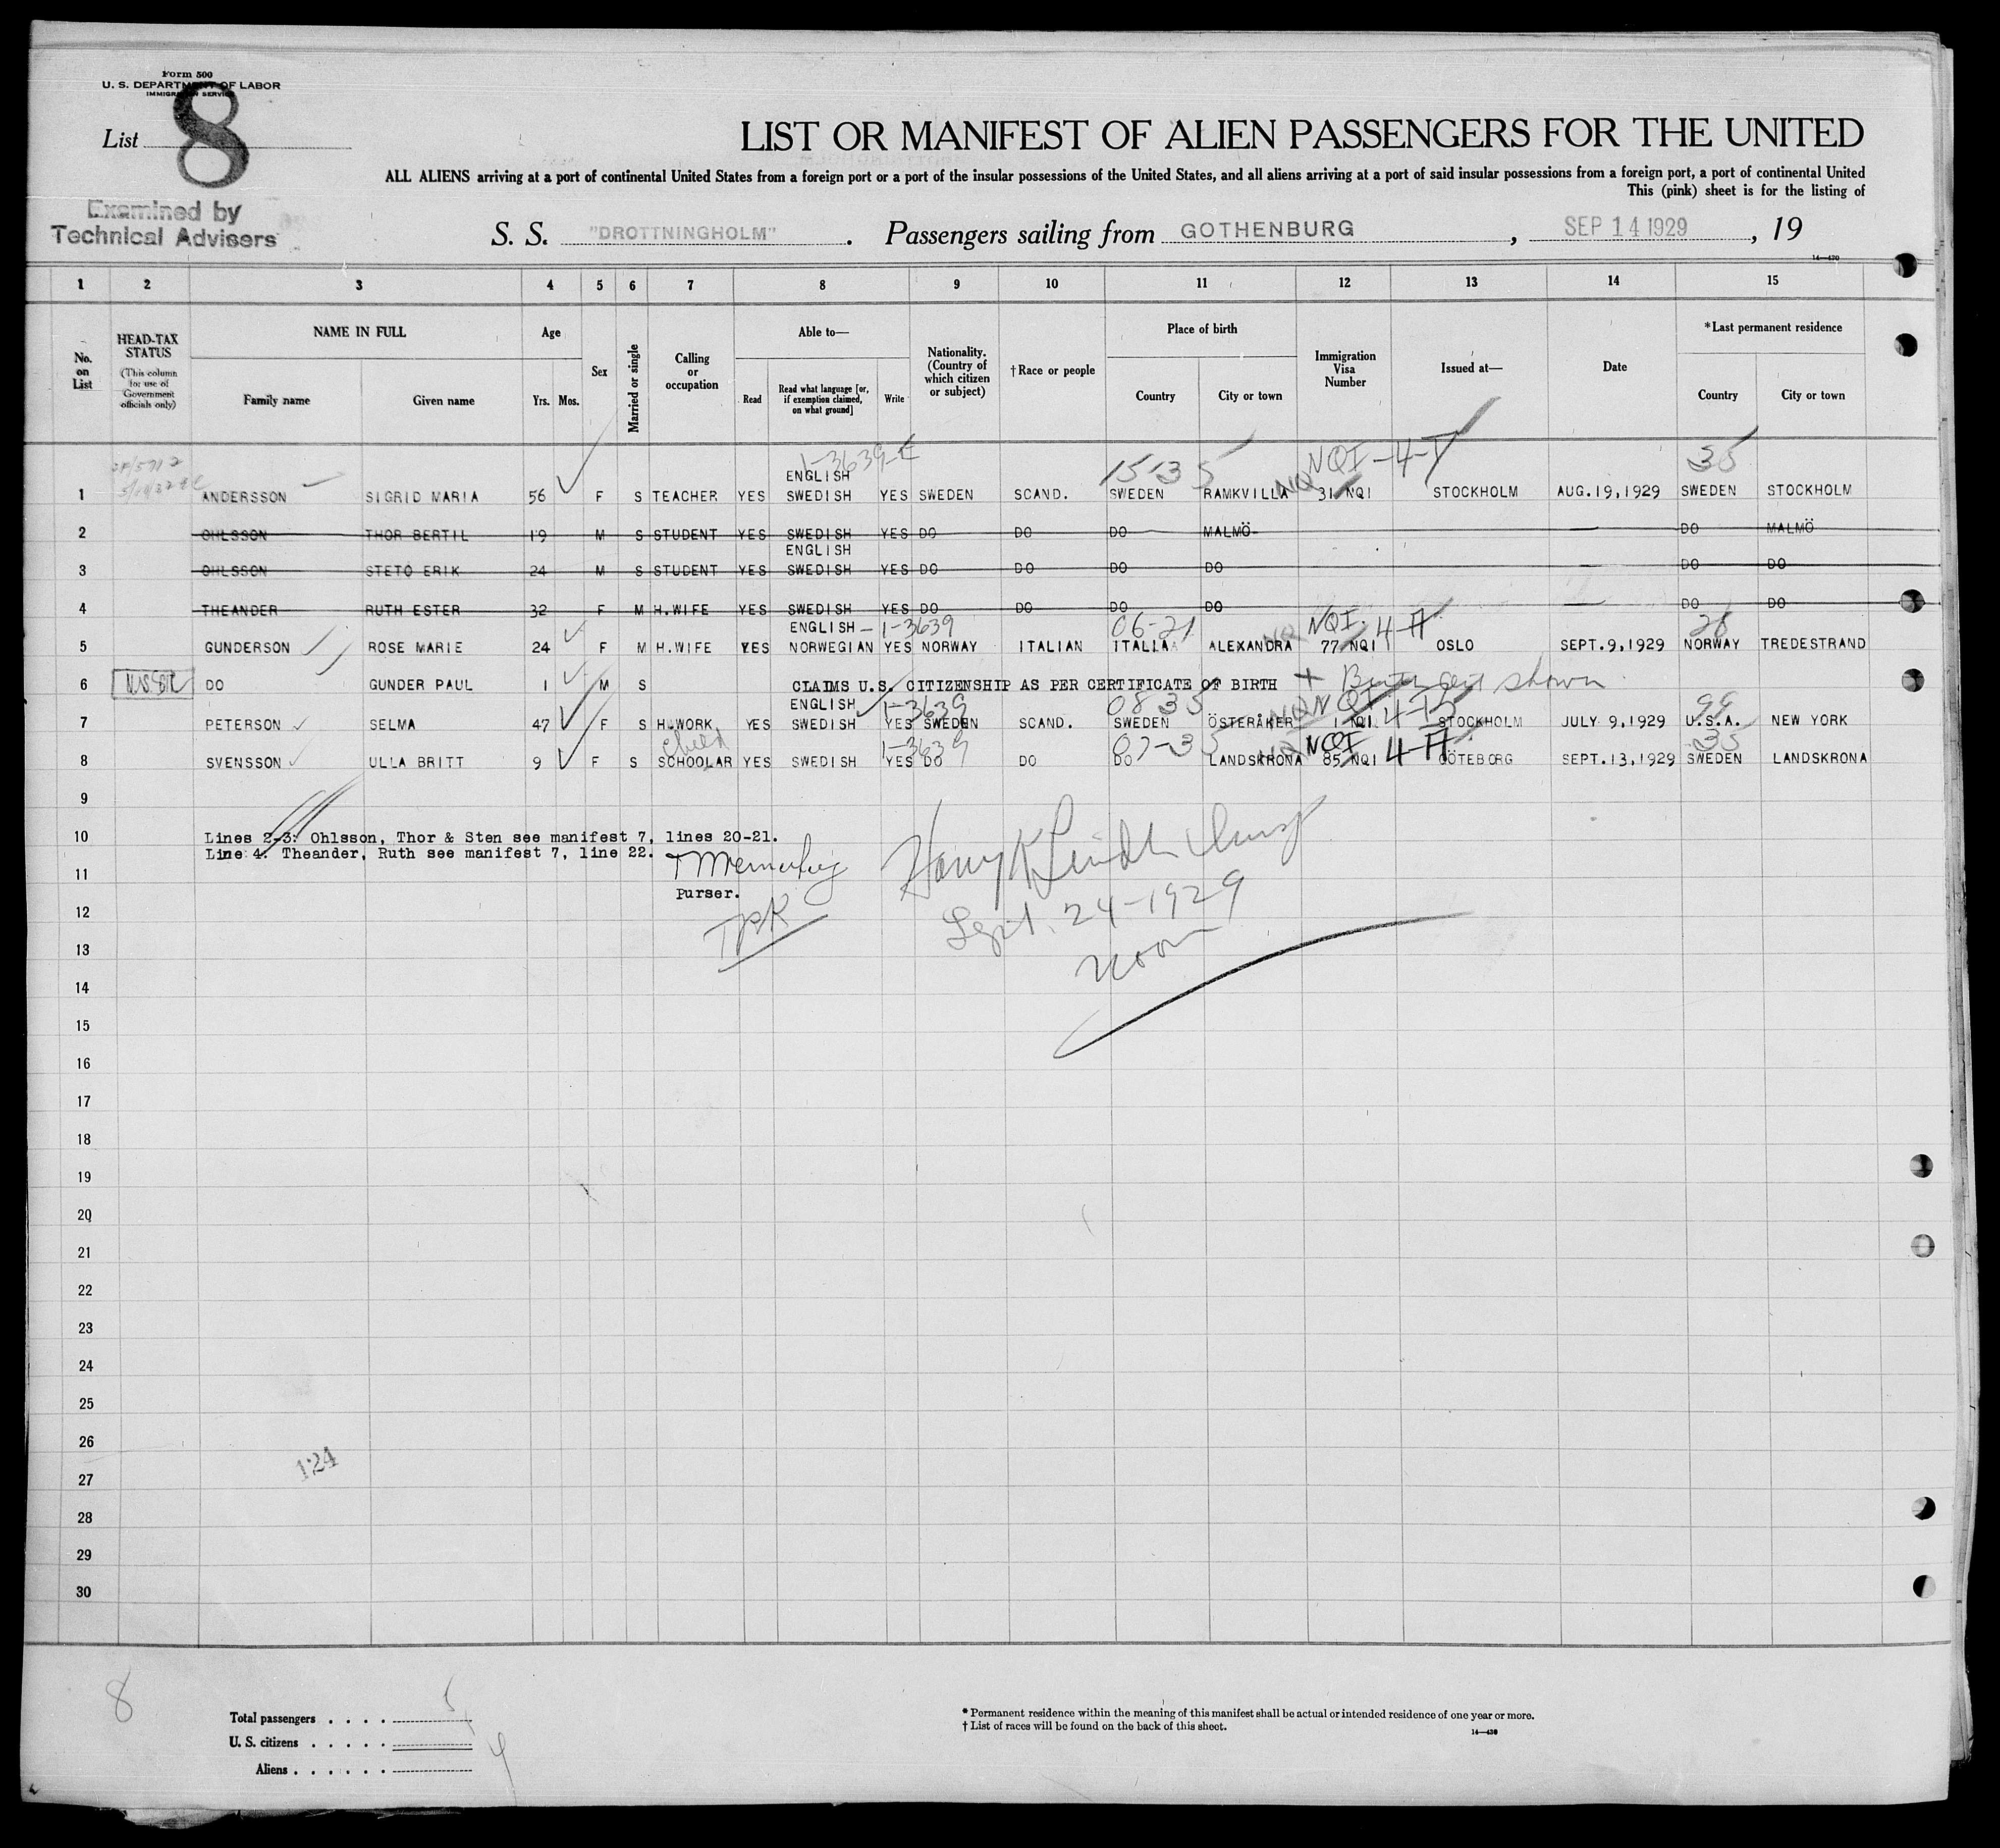 Form 500
U. S. DEPARTMENT OF LABOR
IMMIGRATION SERVICE
List 8
LIST OR MANIFEST OF ALIEN PASSENGERS FOR THE UNITED
ALL ALIENS arriving at a port of continental United States from a foreign port or a port of the insular possessions of the United States, and all aliens arriving at a port of said insular possessions from a foreign port, a port of continental United
This (pink) sheet is for the listing of
Examined by
Technical Advisers
S. S. "DROTTNINGHOLM". Passengers sailing from GOTHENBURG, SEP 14 1929, 19
14—430
1 2 3 4 5 6 7 8 9 10 11 12 13 14 15
No. on List
HEAD-TAX STATUS
(This column for use of Government officials only)
NAME IN FULL
Family name Given name
Age
Yrs. Mos.
Sex
Married or single
Calling or occupation
Able to—
Read Read what language [or, if exemption claimed, on what ground] Write
Nationality. (Country of which citizen or subject)
†Race or people
Place of birth
Country City or town
Immigration Visa Number
Issued at—
Date
*Last permanent residence
Country City or town
1-3639-E NQI-4-T
ENGLISH 15 35 35
1 ANDERSSON SIGRID MARIA 56 F S TEACHER YES SWEDISH YES SWEDEN SCAND. SWEDEN RAMKVILLA NQ 31 NQI STOCKHOLM AUG.19,1929 SWEDEN STOCKHOLM
2 OHLSSON THOR BERTIL 19 M S STUDENT YES SWEDISH YES DO DO DO MALMÖ DO MALMÖ
ENGLISH
3 OHLSSON STETO ERIK 24 M S STUDENT YES SWEDISH YES DO DO DO DO DO DO
4 THEANDER RUTH ESTER 32 F M H.WIFE YES SWEDISH YES DO DO DO DO DO DO
ENGLISH – 1-3639 06-21 NQI 4-A 26
5 GUNDERSON ROSE MARIE 24 F M H.WIFE YES NORWEGIAN YES NORWAY ITALIAN ITALIA ALEXANDRA NQ 77 NQI OSLO SEPT.9,1929 NORWAY TREDESTRAND
6 DO GUNDER PAUL 1 M S CLAIMS U.S. CITIZENSHIP AS PER CERTIFICATE OF BIRTH + Birth cert shown
ENGLISH 1-3639 08 35 NQI 4-B 99
7 PETERSON SELMA 47 F S H.WORK YES SWEDISH YES SWEDEN SCAND. SWEDEN ÖSTERÅKER NQ 1 NQI STOCKHOLM JULY 9,1929 U.S.A. NEW YORK
child 1-3639 07-35 NQI 4-A 35
8 SVENSSON ULLA BRITT 9 F S SCHOOLAR YES SWEDISH YES DO DO DO LANDSKRONA NQ 85 NQI GÖTEBORG SEPT.13,1929 SWEDEN LANDSKRONA
9
10 Lines 2-3: Ohlsson, Thor & Sten see manifest 7, lines 20-21.
Line 4. Theander, Ruth see manifest 7, line 22.
11
purser.
12 Sept. 24-1929
13 noon
14
15
16
17
18
19
20
21
22
23
24
25
26
124
27
28
29
30
8
Total passengers . . . . 5
U. S. citizens . . . . .
Aliens . . . . . .
* Permanent residence within the meaning of this manifest shall be actual or intended residence of one year or more.
† List of races will be found on the back of this sheet.
14—430